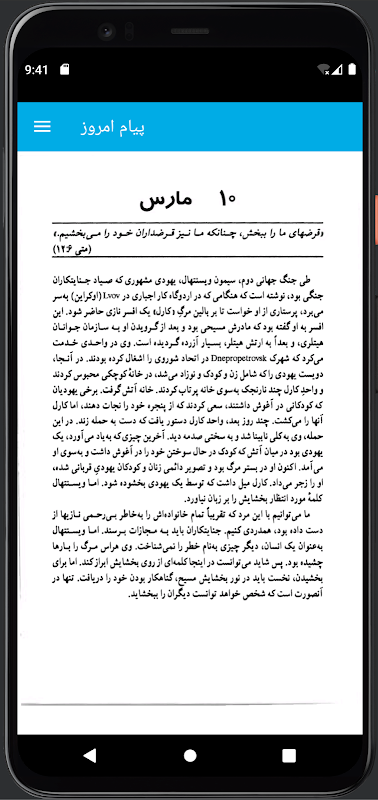 9:41
پیام امروز
۱۰ مارس
«قرضهای ما را ببخش، چنانکه ما نیز قرضداران خود را می‌بخشیم.»
(متی ۱۲:۶)
طی جنگ جهانی دوم، سیمون ویسنتهال، یهودی مشهوری که صیاد جنایتکاران
جنگی بود، نوشته است که هنگامی که در اردوگاه کار اجباری در Lvov (اوکراین) به‌سر
می‌برد، پرستاری از او خواست تا بر بالین مرگِ «کارل» یک افسر نازی حاضر شود. این
افسر به او گفته بود که مادرش مسیحی بود و بعد از گرویدن او به سازمان جوانان
هیتلری، و بعداً به ارتش هیتلر، بسیار آزرده گردیده است. وی در واحدی خدمت
می‌کرد که شهرک Dnepropetrovsk در اتحاد شوروی را اشغال کرده بودند. در آنجا،
دویست یهودی را که شاملِ زن و کودک و نوزاد می‌شد، در خانهٔ کوچکی محبوس کردند
و واحدِ کارل چند نارنجک به‌سوی خانه پرتاب کردند. خانه آتش گرفت. برخی یهودیان
که کودکانی در آغوش داشتند، سعی کردند که از پنجره خود را نجات دهند، اما کارل
آنها را می‌کشت. چند روز بعد، واحد کارل دستور یافت که دست به حمله زند. در این
حمله، وی به‌کلی نابینا شد و به سختی صدمه دید. آخرین چیزی که به‌یاد می‌آورد، یک
یهودی بود در میان آتش که کودک در حال سوختن خود را در آغوش داشت و به‌سوی او
می‌آمد. اکنون او در بستر مرگ بود و تصویر دائمی زنان و کودکان یهودیِ قربانی شده،
او را زجر می‌داد. کارل میل داشت که توسط یک یهودی بخشوده شود. اما ویسنتهال
کلمهٔ مورد انتظار بخشایش را بر زبان نیاورد.
ما می‌توانیم با این مرد که تقریباً تمام خانواده‌اش را به‌خاطر بی‌رحمی نازیها از
دست داده بود، همدردی کنیم. جنایتکاران باید به مجازات برسند. اما ویسنتهال
به‌عنوان یک انسان، دیگر چیزی به‌نام خطر را نمی‌شناخت. وی هراس مرگ را بارها
چشیده بود. پس شاید می‌توانست در اینجا کلمه‌ای از روی بخشایش ابراز کند. اما برای
بخشیدن، نخست باید در نور بخشایش مسیح، گناهکار بودن خود را دریافت. تنها در
آنصورت است که شخص خواهد توانست دیگران را ببخشاید.